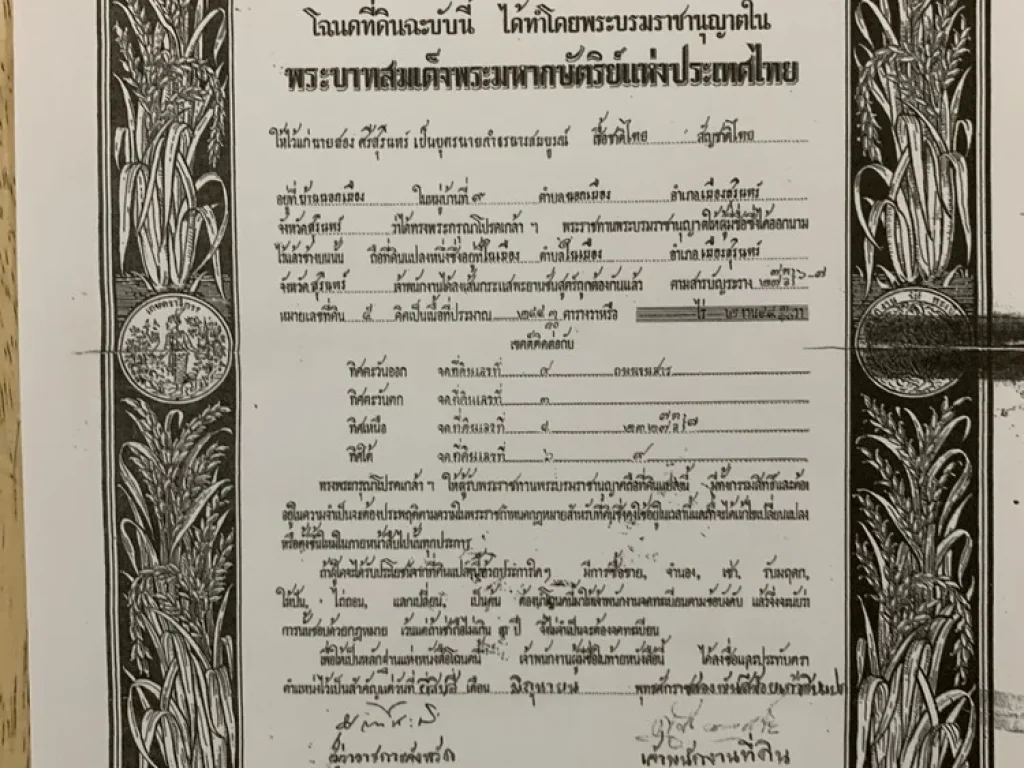 โฉนดที่ดินฉะบับนี้ ได้ทำโดยพระบรมราชานุญาตใน
พระบาทสมเด็จพระมหากษัตริย์แห่งประเทศไทย
ให้ไว้แก่ นายสอง ศรีสุรินทร์ เป็นบุตร เชื้อชาติไทย สัญชาติไทย
อยู่ที่ บ้านนอกเมือง ในหมู่บ้านที่ ๙ ตำบล นอกเมือง อำเภอ เมืองสุรินทร์
จังหวัด สุรินทร์ ว่าได้ทรงพระกรุณาโปรดเกล้า ฯ พระราชทานพระบรมราชานุญาตให้ผู้มีชื่อซึ่งได้ออกนาม
ไว้แล้วข้างบนนั้น ถือที่ดินแปลงหนึ่งซึ่งอยู่ที่ ในเมือง ตำบล ในเมือง อำเภอ เมืองสุรินทร์
จังหวัด สุรินทร์ เจ้าพนักงานได้ลงเส้นกระแสพะยานชันสูตร์ถูกต้องกันแล้ว ตามสารบัญระวาง
หมายเลขที่ดิน ๕ คิดเป็นเนื้อที่ประมาณ ตารางวาหรือ ไร่
เขตต์ติดต่อกับ
ทิศตะวันออก จดที่ดินเลขที่ ๙
ทิศตะวันตก จดที่ดินเลขที่ ๓
ทิศเหนือ จดที่ดินเลขที่ ๔
ทิศใต้ จดที่ดินเลขที่ ๖
ทรงพระกรุณาโปรดเกล้า ฯ ให้ผู้รับพระราชทานพระบรมราชานุญาตถือที่ดินแปลงนี้ มีทั้งกรรมสิทธิ์และต้อง
อยู่ในความจำเป็นจะต้องประพฤติตามความในพระราชกำหนดกฎหมายสำหรับที่ดินซึ่งคงใช้อยู่ในเวลานี้และที่จะได้แก้ไขเปลี่ยนแปลง
หรือตั้งขึ้นใหม่ในภายหน้าสืบไปนั้นทุกประการ
ถ้าผู้ใดจะได้รับประโยชน์จากที่ดินแปลงนี้ด้วยประการใด ๆ มีการซื้อขาย, จำนอง, เช่า, รับมฤดก,
ให้ปัน, ไถ่ถอน, แลกเปลี่ยน, เป็นต้น ต้องนำโฉนดนี้มาให้เจ้าพนักงานจดทะเบียนตามข้อบังคับ แล้วจึ่งจะนับว่า
การนั้นชอบด้วยกฎหมาย เว้นแต่ถ้าเช่าถือไม่เกิน ๓ ปี จึ่งไม่จำเป็นจะต้องจดทะเบียน
เพื่อให้เป็นหลักฐานแห่งหนังสือโฉนดนี้ เจ้าพนักงานผู้มีชื่อในท้ายหนังสือนี้ ได้ลงชื่อและประทับตรา
ตำแหน่งไว้เป็นสำคัญแต่วันที่ ยี่สิบสี่ เดือน มิถุนายน พุทธศักราชสองพันสี่ร้อย
ผู้ว่าราชการจังหวัด เจ้าพนักงานที่ดิน